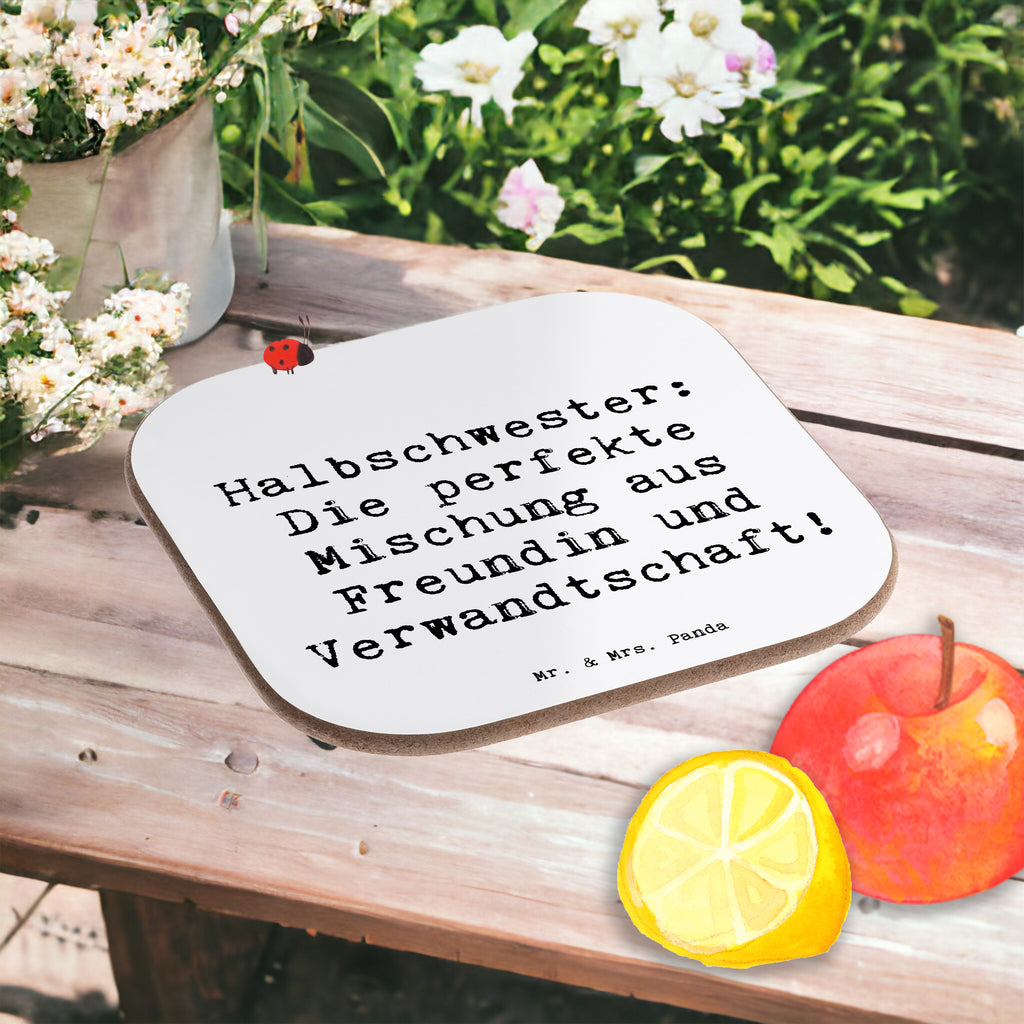 Halbschwester:
Die perfekte
Mischung aus
Freundin und
Verwandtschaft!
Mr. & Mrs. Panda